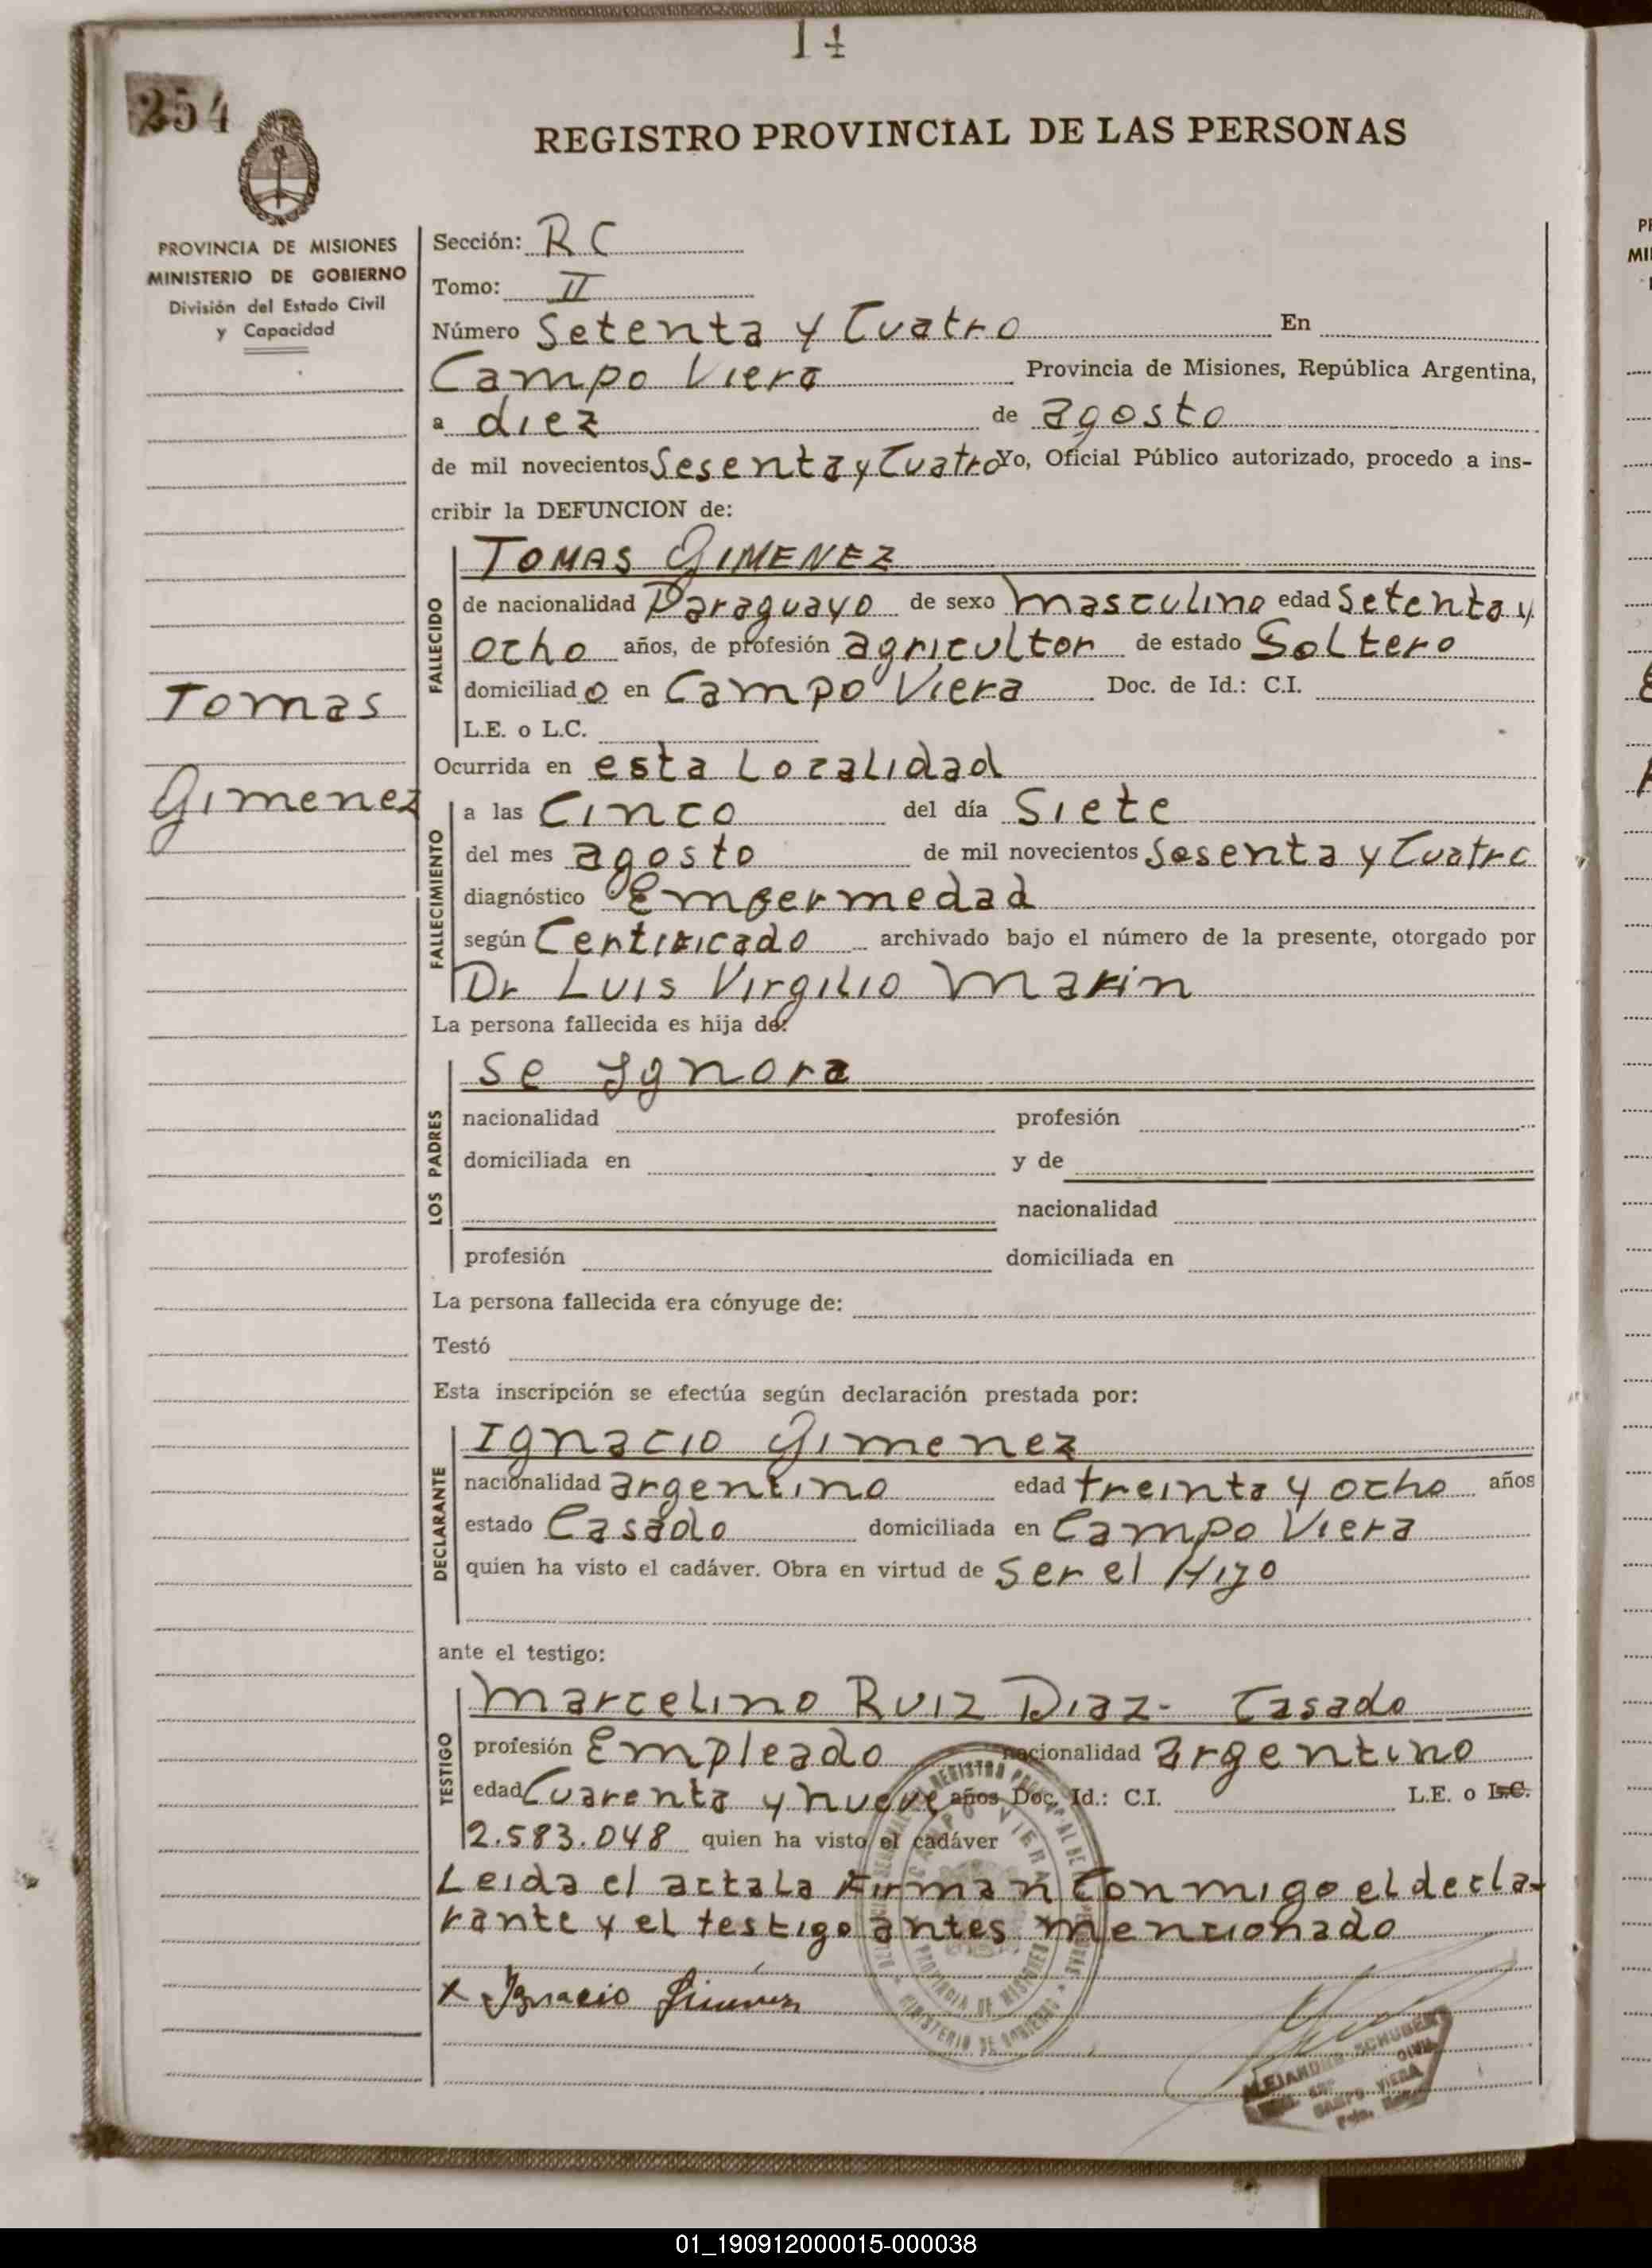 14
254
REGISTRO PROVINCIAL DE LAS PERSONAS
PROVINCIA DE MISIONES
MINISTERIO DE GOBIERNO
División del Estado Civil
y Capacidad
Tomas
Gimenez
Sección: R C
Tomo: II
Número Setenta y Cuatro En
Campo Viera Provincia de Misiones, República Argentina,
a diez de agosto
de mil novecientos Sesenta y Cuatro Yo, Oficial Público autorizado, procedo a ins-
cribir la DEFUNCION de:
FALLECIDO
TOMAS GIMENEZ
de nacionalidad Paraguayo de sexo masculino edad Setenta y
ocho años, de profesión agricultor de estado Soltero
domiciliado en Campo Viera Doc. de Id.: C.I.
L.E. o L.C.
Ocurrida en esta Localidad
FALLECIMIENTO
a las Cinco del día Siete
del mes agosto de mil novecientos Sesenta y Cuatro
diagnóstico Emfermedad
según Certificado archivado bajo el número de la presente, otorgado por
Dr Luis Virgilio Marin
La persona fallecida es hija de:
LOS PADRES
se Ignora
nacionalidad profesión
domiciliada en y de
nacionalidad
profesión domiciliada en
La persona fallecida era cónyuge de:
Testó
Esta inscripción se efectúa según declaración prestada por:
DECLARANTE
Ignacio Gimenez
nacionalidad argentino edad treinta y ocho años
estado Casado domiciliada en Campo Viera
quien ha visto el cadáver. Obra en virtud de Ser el Hijo
ante el testigo:
TESTIGO
Marcelino Ruiz Diaz- Casado
profesión Empleado nacionalidad argentino
edad Cuarenta y nueve años Doc. Id.: C.I. L.E. o L.C.
2.583.048 quien ha visto el cadáver
Leida el acta la Firman Conmigo el decla-
rante y el testigo antes mencionado
x Ignacio Gimenez
CAMPO VIERA
PROVINCIA DE MISIONES
MINISTERIO DE GOBIERNO
ALEJANDRO SCHUBERT
CIVIL
CAMPO VIERA
01_190912000015-000038